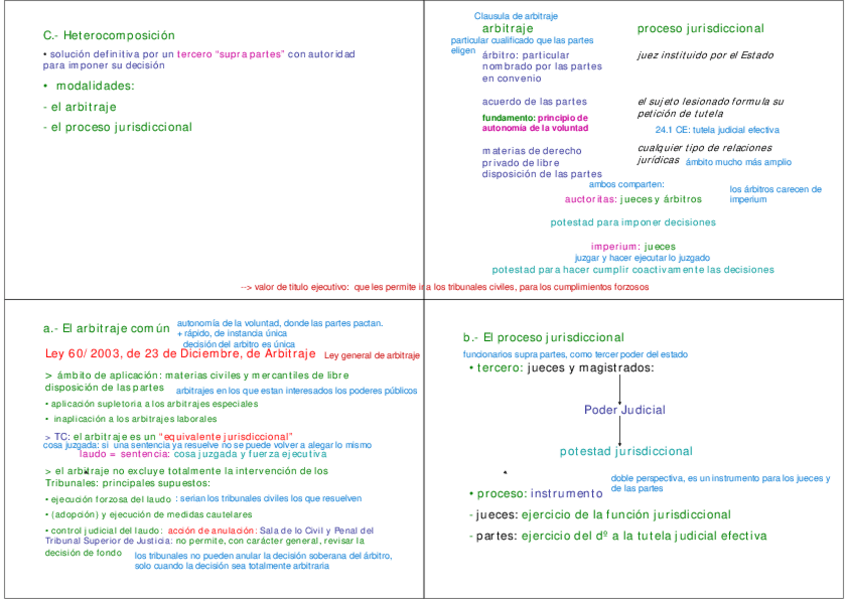 C.- Heterocomposición
• solución definitiva por un tercero “supra partes” con autoridad
para imponer su decisión
• modalidades:
- el arbitraje
- el proceso jurisdiccional
Clausula de arbitraje
arbitraje
proceso jurisdiccional
particular cualificado que las partes
eligen
árbitro: particular
nombrado por las partes
en convenio
juez instituido por el Estado
acuerdo de las partes
el sujeto lesionado formula su
petición de tutela
fundamento: principio de
autonomía de la voluntad
24.1 CE: tutela judicial efectiva
materias de derecho
privado de libre
disposición de las partes
cualquier tipo de relaciones
jurídicas ámbito mucho más amplio
ambos comparten:
auctoritas: jueces y árbitros
los árbitros carecen de
imperium
potestad para imponer decisiones
imperium: jueces
juzgar y hacer ejecutar lo juzgado
potestad para hacer cumplir coactivamente las decisiones
--> valor de titulo ejecutivo: que les permite ir a los tribunales civiles, para los cumplimientos forzosos
a.- El arbitraje común
autonomía de la voluntad, donde las partes pactan.
+ rápido, de instancia única
decisión del arbitro es única
Ley 60/2003, de 23 de Diciembre, de Arbitraje Ley general de arbitraje
> ámbito de aplicación: materias civiles y mercantiles de libre
disposición de las partes arbitrajes en los que estan interesados los poderes públicos
• aplicación supletoria a los arbitrajes especiales
• inaplicación a los arbitrajes laborales
> TC: el arbitraje es un “equivalente jurisdiccional”
cosa juzgada: si una sentencia ya resuelve no se puede volver a alegar lo mismo
laudo = sentencia: cosa juzgada y fuerza ejecutiva
> el arbitraje no excluye totalmente la intervención de los
Tribunales: principales supuestos:
• ejecución forzosa del laudo : serían los tribunales civiles los que resuelven
• (adopción) y ejecución de medidas cautelares
• control judicial del laudo: acción de anulación: Sala de lo Civil y Penal del
Tribunal Superior de Justicia: no permite, con carácter general, revisar la
decisión de fondo
los tribunales no pueden anular la decisión soberana del árbitro,
solo cuando la decisión sea totalmente arbitraria
b.- El proceso jurisdiccional
funcionarios supra partes, como tercer poder del estado
• tercero: jueces y magistrados:
Poder Judicial
potestad jurisdiccional
doble perspectiva, es un instrumento para los jueces y
de las partes
• proceso: instrumento
- jueces: ejercicio de la función jurisdiccional
- partes: ejercicio del dº a la tutela judicial efectiva